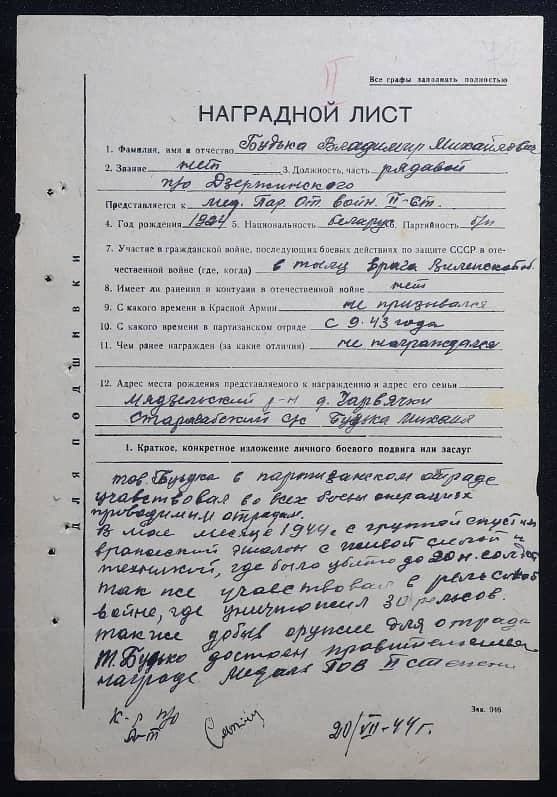 II
Все графы заполнять полностью
НАГРАДНОЙ ЛИСТ
1. Фамилия, имя и отчество Будька Владимир Михайлович
2. Звание нет 3. Должность, часть рядавой
п/о Дзержинского
Представляется к мед. Пар. От. войн. II-Ст.
4. Год рождения 1924 5. Национальность беларус. Партийность б/п
7. Участие в гражданской войне, последующих боевых действиях по защите СССР в оте-
чественной войне (где, когда) в тылу врага Виленской об.
8. Имеет ли ранения и контузии в отечественной войне нет
9. С какого времени в Красной Армии не призывался
10. С какого времени в партизанском отряде с 9.43 года
11. Чем ранее награжден (за какие отличия) не награждался
12. Адрес места рождения представляемого к награждению и адрес его семьи
Мядзельский р-н д. Чарвячки
Старгабский с/с Будька Михаил
1. Краткое, конкретное изложение личного боевого подвига или заслуг
тов. Будька в партизанском отраде
учавствовал во всех боевы операциях
проводимым отрадом.
В мае месяце 1944г. с групой спустил
вражеский эшалон с живой силой и
техникой, где было убито до 20 н. солдат
так же учавствовал в рельсовой
войне, где уничтожил 30 рельсов.
также добыв оружие для отрада
т. Будько достоен правительственой
награде Медаль ПОВ II степени
К-р п/о
20/VII-44г.
Зак. 946
ДЛЯ ПОДШИВКИ